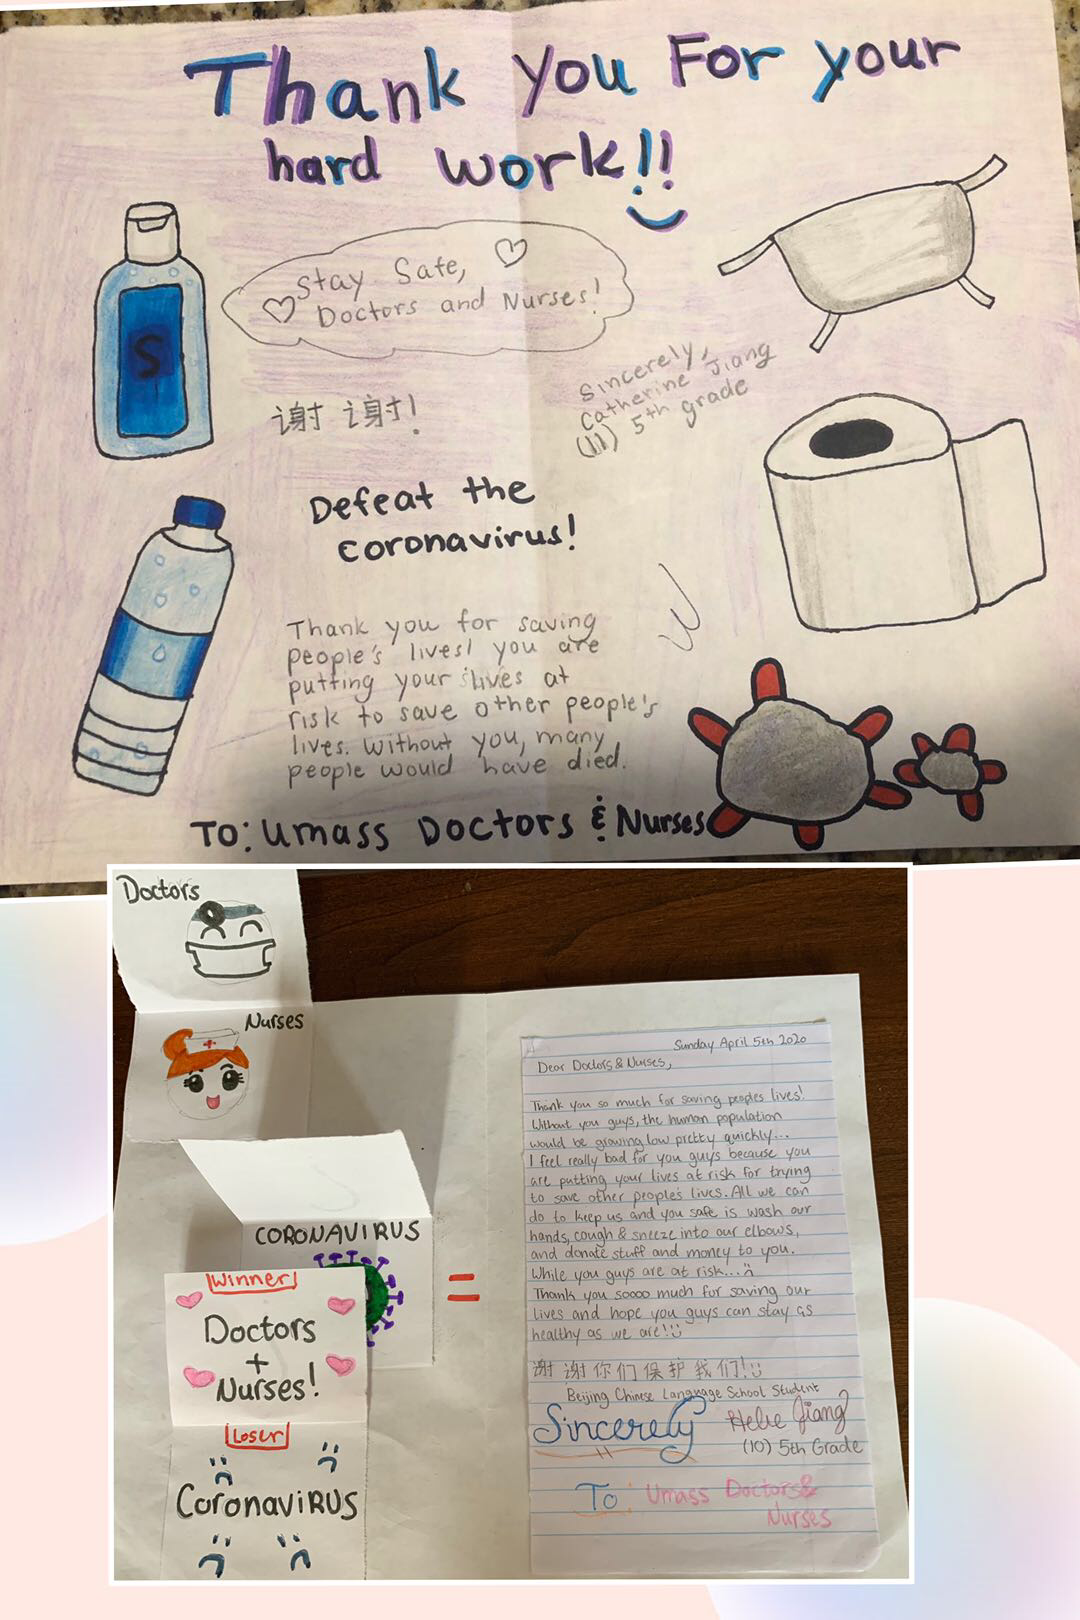 Thank you For your
hard work!!
S
Stay Safe,
Doctors and Nurses!
谢谢!
Sincerely,
Catherine Jiang
(11) 5th grade
Defeat the
coronavirus!
Thank you for saving
people's lives! you are
putting your slives at
risk to save other people's
lives. Without you, many
people would have died.
To: Umass Doctors & Nurses
Doctors
Nurses
CORONAVIRUS
Winner
Doctors
+
Nurses!
Loser
CoronaviRUS
=
Sunday April 5th 2020
Dear Doctors & Nurses,
Thank you so much for saving peoples lives!
Without you guys, the human population
would be growing low pretty quickly...
I feel really bad for you guys because you
are putting your lives at risk for trying
to save other people's lives. All we can
do to keep us and you safe is wash our
hands, cough & sneeze into our elbows,
and donate stuff and money to you.
While you guys are at risk...
Thank you soooo much for saving our
lives and hope you guys can stay as
healthy as we are!
谢谢你们保护我们!
Beijing Chinese Language School Student
Sincerely Jiang
(10) 5th Grade
To: Umass Doctors &
Nurses